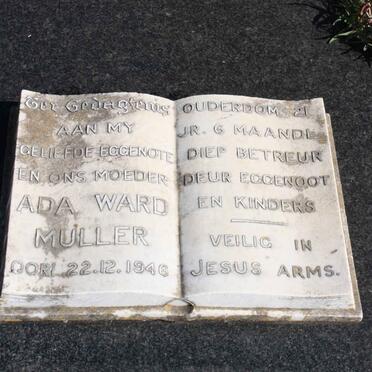 Ter Gedagtenis
AAN MY
GELIEFDE EGGENOTE
EN ONS MOEDER
ADA WARD
MULLER
OORL 22.12.1946
OUDERDOM 21
JR. 6 MAANDE
DIEP BETREUR
DEUR EGGENOOT
EN KINDERS
VEILIG IN
JESUS ARMS.